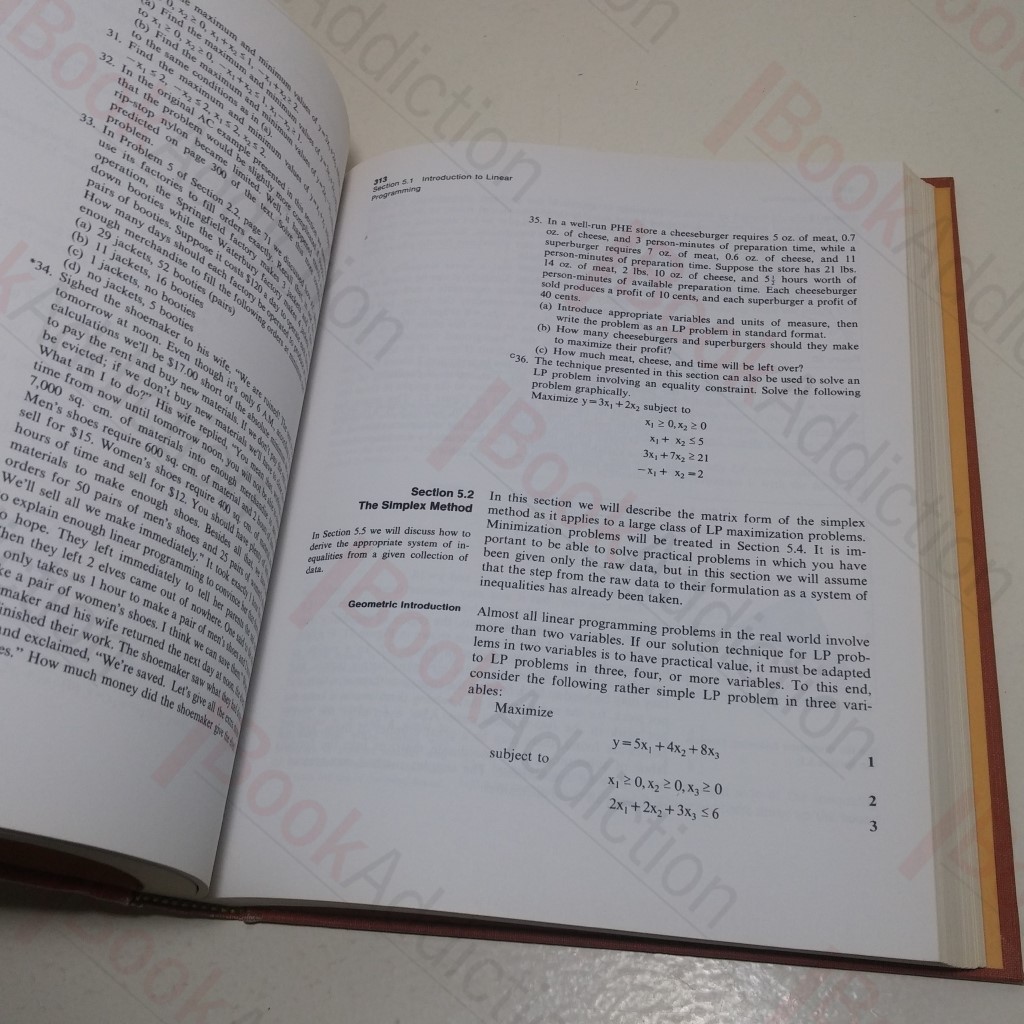 e maximum and minimum values of
0, x₂ ≥ 0, x₁ + x₂ ≤ 1, −x₁ + x₂ ≥
(a) Find the maximum and minimum values of
to x₁ ≥ 0, x₂ ≥ 0, −x₁ + x₂ ≤ 1, x₁ − x₂ ≤
(b) Find the maximum and minimum values of
to the same conditions as in (a).
31. Find the maximum and minimum values of
−x₁ ≤ 2, −x₂ ≤ 2, x₁ ≤ 2, x₂ ≤ 2.
32. In the original AC example presented in this
that the problem would be slightly more complicated
rip-stop nylon became limited. Well, it
predicted on page 300 of the text. Solve
problem.
33. In Problem 5 of Section 2.2, page 71, we
use its factories to fill orders exactly. Recall
operation, the Springfield factory makes 3 jackets
down booties while the Waterbury factory
pairs of booties. Suppose it costs $120 a day to
How many days should each factory be open
enough merchandise to fill the following orders at
(a) 29 jackets, 52 booties (pairs)
(b) 11 jackets, 16 booties
(c) 1 jackets, no booties
(d) no jackets, 5 booties
*34. Sighed the shoemaker to his wife, "We are ruined! The
tomorrow at noon. Even though it's only 6 A.M.
calculations we'll be $17.00 short of the absolute minimum
to pay the rent and buy new materials. If we don't pay
be evicted; if we don't buy new materials we'll have
What am I to do?" His wife replied, "You mean
time from now until tomorrow noon, you will not be able
7,000 sq. cm. of materials into enough merchandise
Men's shoes require 600 sq. cm. of material and 2 hours
sell for $15. Women's shoes require 400 sq. cm. of
hours of time and sell for $12. You should have plenty of
materials to make enough shoes. Besides, all
orders for 50 pairs of men's shoes and 25 pairs of women's
We'll sell all we make immediately." It took exactly
o explain enough linear programming to convince her
o hope. They left immediately to tell her parents the
hen they left 2 elves came out of nowhere. One said to
only takes us 1 hour to make a pair of men's shoes and
ke a pair of women's shoes. I think we can save them."
maker and his wife returned the next day at noon,
inished their work. The shoemaker saw what they had
and exclaimed, "We're saved. Let's give all the extra
es." How much money did the shoemaker give
313
Section 5.1 Introduction to Linear
Programming
35. In a well-run PHE store a cheeseburger requires 5 oz. of meat, 0.7
oz. of cheese, and 3 person-minutes of preparation time, while a
superburger requires 7 oz. of meat, 0.6 oz. of cheese, and 11
person-minutes of preparation time. Suppose the store has 21 lbs.
14 oz. of meat, 2 lbs. 10 oz. of cheese, and 5½ hours worth of
person-minutes of available preparation time. Each cheeseburger
sold produces a profit of 10 cents, and each superburger a profit of
40 cents.
(a) Introduce appropriate variables and units of measure, then
write the problem as an LP problem in standard format.
(b) How many cheeseburgers and superburgers should they make
to maximize their profit?
(c) How much meat, cheese, and time will be left over?
c36. The technique presented in this section can also be used to solve an
LP problem involving an equality constraint. Solve the following
problem graphically.
Maximize y = 3x₁ + 2x₂ subject to
x₁ ≥ 0, x₂ ≥ 0
x₁ + x₂ ≤ 5
3x₁ + 7x₂ ≥ 21
−x₁ + x₂ = 2
Section 5.2
The Simplex Method
In Section 5.5 we will discuss how to
derive the appropriate system of in-
equalities from a given collection of
data.
In this section we will describe the matrix form of the simplex
method as it applies to a large class of LP maximization problems.
Minimization problems will be treated in Section 5.4. It is im-
portant to be able to solve practical problems in which you have
been given only the raw data, but in this section we will assume
that the step from the raw data to their formulation as a system of
inequalities has already been taken.
Geometric Introduction
Almost all linear programming problems in the real world involve
more than two variables. If our solution technique for LP prob-
lems in two variables is to have practical value, it must be adapted
to LP problems in three, four, or more variables. To this end,
consider the following rather simple LP problem in three vari-
ables:
Maximize
y = 5x₁ + 4x₂ + 8x₃ 1
subject to
x₁ ≥ 0, x₂ ≥ 0, x₃ ≥ 0 2
2x₁ + 2x₂ + 3x₃ ≤ 6 3
BookAddiction